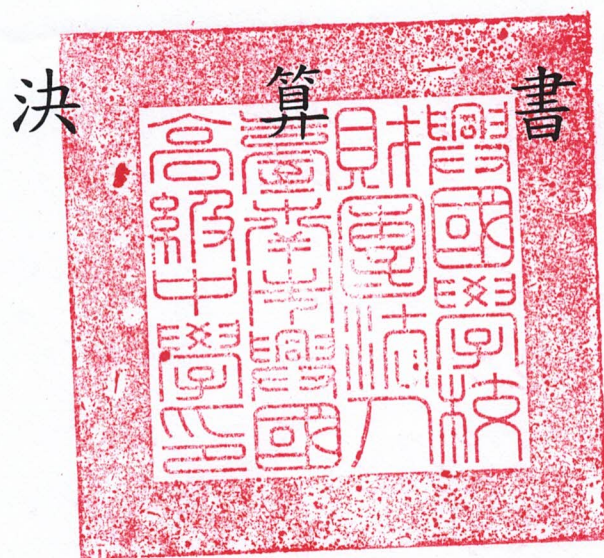 決算書
興國學校
財團法人
臺南市興國
高級中學印